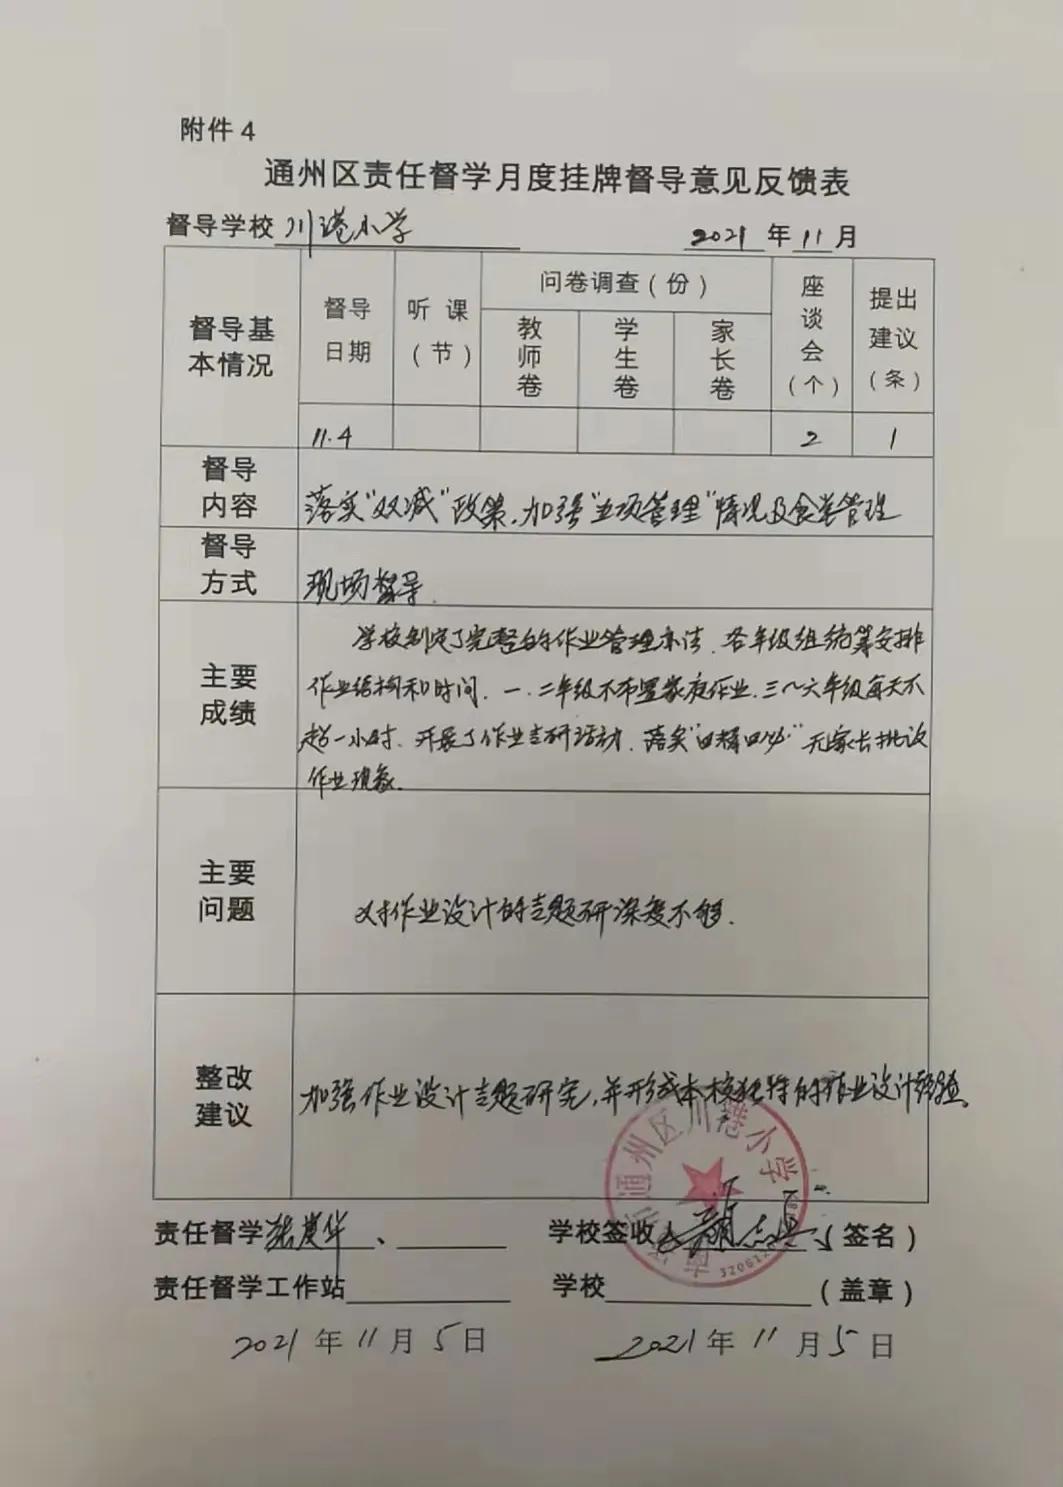 附件4
通州区责任督学月度挂牌督导意见反馈表
督导学校 川港小学 2021年11月
督导基本情况
督导日期
听课（节）
问卷调查（份）
教师卷
学生卷
家长卷
座谈会（个）
提出建议（条）
11.4 2 1
督导内容
落实"双减"政策,加强"五项管理"情况及食堂管理
督导方式
现场督导.
主要成绩
学校制定了完整的作业管理办法.各年级组统筹安排
作业结构和时间.一.二年级不布置家庭作业.三～六年级每天不
超一小时.开展了作业专研活动.落实"四精四必"无家长批改
作业现象.
主要问题
对作业设计的专题研深度不够.
整改建议
加强作业设计专题研究,并形成本校独特的作业设计经验.
责任督学 、 学校签收 （签名）
责任督学工作站 学校 （盖章）
2021年11月5日 2021年11月5日
通州区川港小学